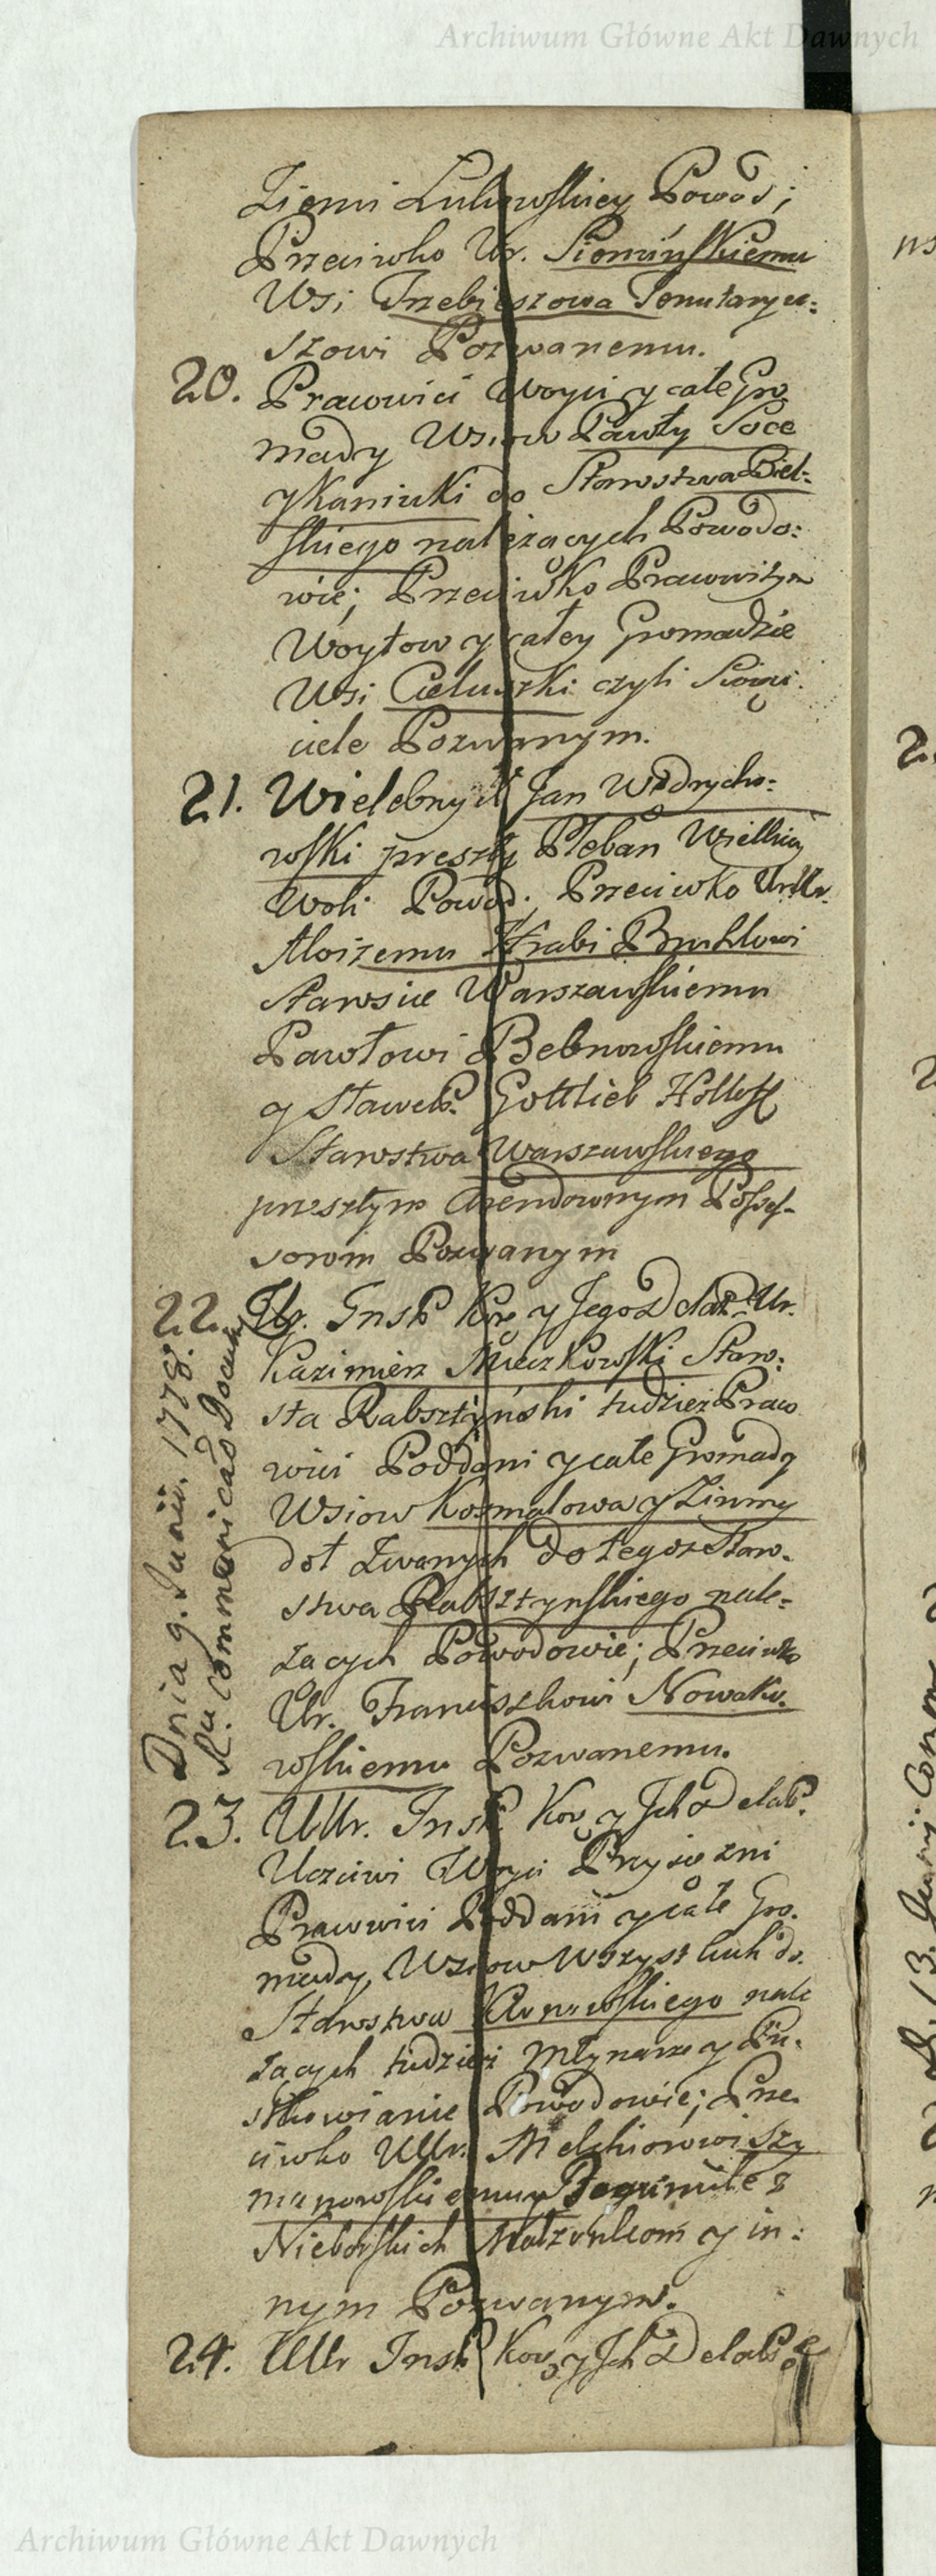 Archiwum Główne Akt Dawnych
Ziemi Lukowskiey Powod;
Przeciwko Ur. Siemińskiemu
Wsi Trzebieszowa Tenutaryu:
szowi Pozwanemu.
20. Prawowici Woyci y całe Gro
mady Wsiow Pawły Soce
y Kaniuki do Starostwa Biel:
skiego należacych Powodo:
wie; Przeciwko Prawowitym
Woytow y całey Gromadzie
Wsi Cieluszki czyli
ciele Pozwanym.
21. Wielebny X Jan Wędrycho:
wski preszły Pleban Wielkiey
Woli Powod; Przeciwko
Aloizemu Hrabi Bruhlowi
Staroscie Warszawskiemu
Pawłowi Bebnowskiemu
y Sławet. Gottlieb
Starostwa Warszawskiego
przeszłym Arendownym Possess-
sorom Pozwanym
22. Ur. Inst. Kor. y Jego Delat. Ur.
Kazimierz Mieczkowski Staro:
sta Rabsztyński tudziez Prawo
wici Poddani y całe Gromady
Wsiow Kosmolowa y Zimny
doł Zwanych do tegoz Staro.
stwa Rabsztynskiego nale=
zacych Powodowie; Przeciwko
Ur. Franciszkowi Nowako.
wskiemu Pozwanemu.
Dnia 9. Junii. 1778.
23. UUr. Inst. Kor. y Jch Delat.
Uczciwi Woyci Przysiezni
Prawowici Poddani y całe Gro.
mady, Wsiow Wszystkich do
Starostwa nale
zacych tudziesz Młynarze y Pu.
stkowianie Powodowie; Prze
ciwko UUr. Melchiorowi Szy
manowskiemu y Bogumile z
Nieborskich Małzonkom y in:
nym Pozwanym.
24. UUr Inst. Kor. y Jch Delat.
Archiwum Główne Akt Dawnych